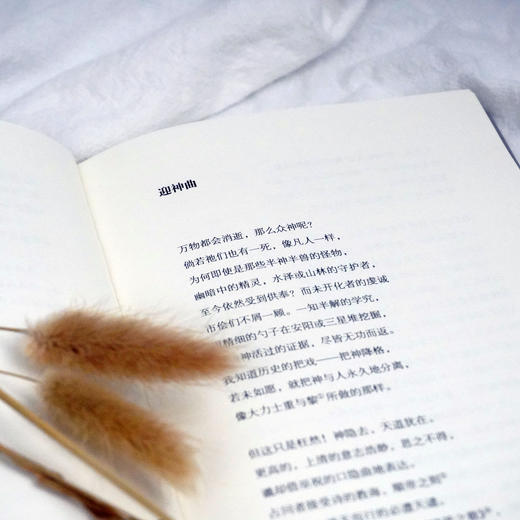 迎神曲
万物都会消逝，那么众神呢？
倘若祂们也有一死，像凡人一样，
为何即使是那些半神半兽的怪物，
幽暗中的精灵，水泽或山林的守护者，
至今依然受到供奉？而未开化者的虔诚
市侩们不屑一顾。一知半解的学究，
精细的勺子在安阳或三星堆挖掘，
神活过的证据，尽皆无功而返。
我知道历史的把戏——把神降格，
若未如愿，就把神与人永久地分离，
像大力士重与黎所做的那样。
但这只是枉然！神隐去，天道犹在。
更高的，上清的意志浩渺，思之不得，
占问者接受诗的教诲，